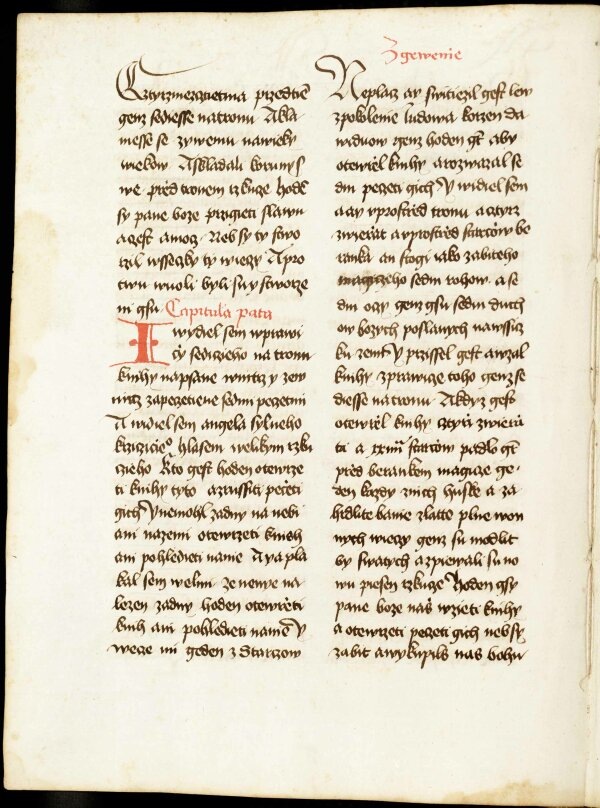 Zgewenie
Cztyrzmezczietma przedtiē
genz sediesse natronu Akla
niesse se zywemu nawieky
wiekow Askladali koruny s
we pred tronem rzkuze hodē
sy pane boze przigieti slawu
aczest amocz Neb sy ty stwo
rzil wssecky ty wieczy Apro
twu wuoli byli su y stworze
ni gsu Capitula pata
I wydiel sem wprawi
czy sediczieho na tronu
knihy napsane wnitrz y zew
nitz zapeczetiene sedmi peczetmi
A widiel sem angela sylneho
krziczicieho hlasem welikym rzku
czieho Kto gest hoden otewrze
ti knihy tyto azrussiti peczeti
gich Ynemohl zadny na nebi
ani nazemi otewrzeti knieh
ani pohledieti nanie A ya pla
kal sem welmi ze newe na
lezen zadny hoden otewrzeti
knih ani pohledieti nanie Y
wecze mi geden z Starczow
Neplacz ay switiezil gest lew
zpokolenie ludowa korzen da
widuow genz hoden gest aby
otewrzel knihy arozwazal se
dm peczeti gich Y widiel sem
aay vprostred tronu acztyrz
zwierzat avprostred starczow be
ranka an stogi iako zabiteho
magiczeho sedm rohow a se
dm oczy genz gsu sedm duch
ow bozych poslanych nawssicz
ku zemi Y przissel gest awzal
knihy zprawicze toho genz se
diesse natronu Akdyz gest
otewrzel knihy cztyrzi zwierza
ti a xxiiii starczow padlo gest
pred berankem magicze ge
den kazdy znich husle a za
hidlite banie zlatte plne won
nych wieczy genz su modlit
by swatych azpiewali su no
wu piesen rzkuze Hoden gsy
pane boze nas wzieti knihy
a otewrzeti peczeti gich neb sy
zabit awykupils nas bohu